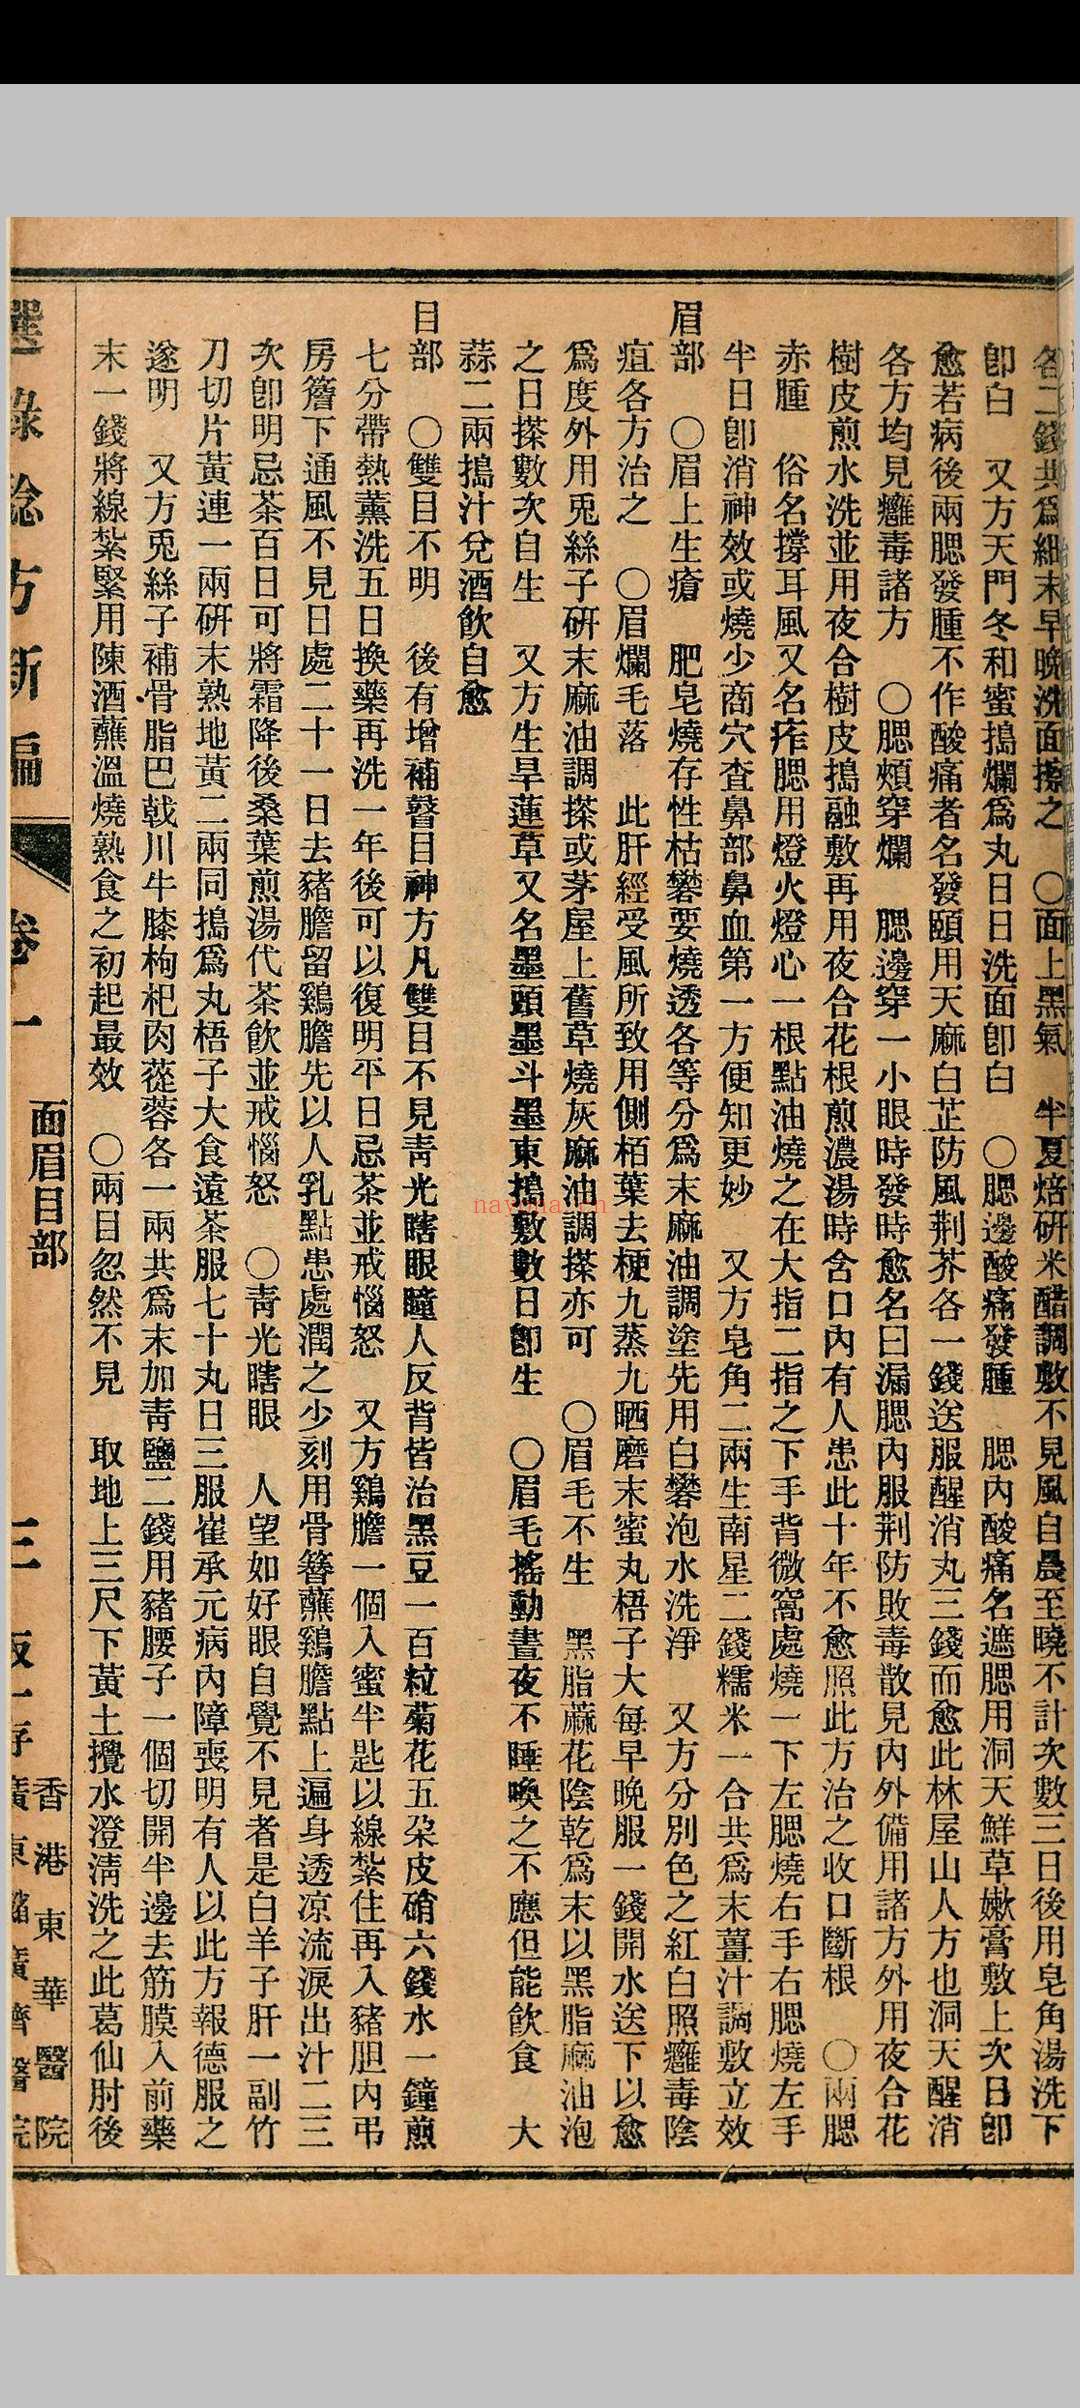 各二錢共爲細末早晚洗面搽之　〇面上黑氣　半夏焙研米醋調敷不見風自晨至曉不計次數三日後用皂角湯洗下
卽白　又方天門冬和蜜搗爛爲丸日日洗面卽白　〇腮邊酸痛發腫　腮內酸痛名遮腮用洞天鮮草嫰膏敷上次日卽
愈若病後兩腮發腫不作酸痛者名發頤用天麻白芷防風荆芥各一錢送服醒消丸三錢而愈此林屋山人方也洞天醒消
各方均見癰毒諸方　〇腮頰穿爛　腮邊穿一小眼時發時愈名曰漏腮內服荆防敗毒散見內外備用諸方外用夜合花
樹皮煎水洗並用夜合樹皮搗融敷再用夜合花根煎濃湯時含口內有人患此十年不愈照此方治之收口斷根　〇兩腮
赤腫　俗名撐耳風又名痄腮用燈火燈心一根點油燒之在大指二指之下手背微窩處燒一下左腮燒右手右腮燒左手
半日卽消神效或燒少商穴查鼻部鼻血第一方便知更妙　又方皂角二兩生南星二錢糯米一合共爲末薑汁調敷立效
眉部　〇眉上生瘡　肥皂燒存性枯礬要燒透各等分爲末麻油調塗先用白礬泡水洗淨　又方分別色之紅白照癰毒陰
疽各方治之　〇眉爛毛落　此肝經受風所致用側栢葉去梗九蒸九晒磨末蜜丸梧子大每早晚服一錢開水送下以愈
爲度外用兎絲子研末麻油調搽或茅屋上舊草燒灰麻油調搽亦可　〇眉毛不生　黑脂蔴花陰乾爲末以黑脂麻油泡
之日搽數次自生　又方生旱蓮草又名墨頭墨斗墨東搗敷數日卽生　〇眉毛搖動晝夜不睡喚之不應但能飲食　大
蒜二兩搗汁兌酒飲自愈
目部　〇雙目不明　後有增補瞽目神方凡雙目不見靑光瞎眼瞳人反背皆治黑豆一百粒菊花五朶皮硝六錢水一鐘煎
七分帶熱薰洗五日換藥再洗一年後可以復明平日忌茶並戒惱怒　又方鷄膽一個入蜜半匙以線紮住再入豬胆內弔
房簷下通風不見日處二十一日去豬膽留鷄膽先以人乳點患處潤之少刻用骨簪蘸鷄膽點上遍身透凉流淚出汁二三
次卽明忌茶百日可將霜降後桑葉煎湯代茶飲並戒惱怒　〇靑光瞎眼　人望如好眼自覺不見者是白羊子肝一副竹
刀切片黃連一兩研末熟地黃二兩同搗爲丸梧子大食遠茶服七十丸日三服崔承元病內障喪明有人以此方報德服之
遂明　又方兎絲子補骨脂巴戟川牛膝枸杞肉蓯蓉各一兩共爲末加靑鹽二錢用豬腰子一個切開半邊去筋膜入前藥
末一錢將線紮緊用陳酒蘸溫燒熟食之初起最效　〇兩目忽然不見　取地上三尺下黃土攪水澄淸洗之此葛仙肘後
選錄驗方新編　卷一　面眉目部　三　板存
香港東華醫院
廣東省城廣濟醫院
nayona.cn